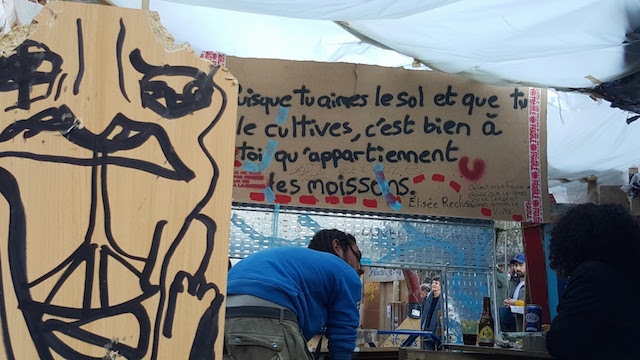 uisque tu aimes le sol et que tu
le cultives, c'est bien à
toi qu'appartiennent
les moissons.
Élisée Reclus